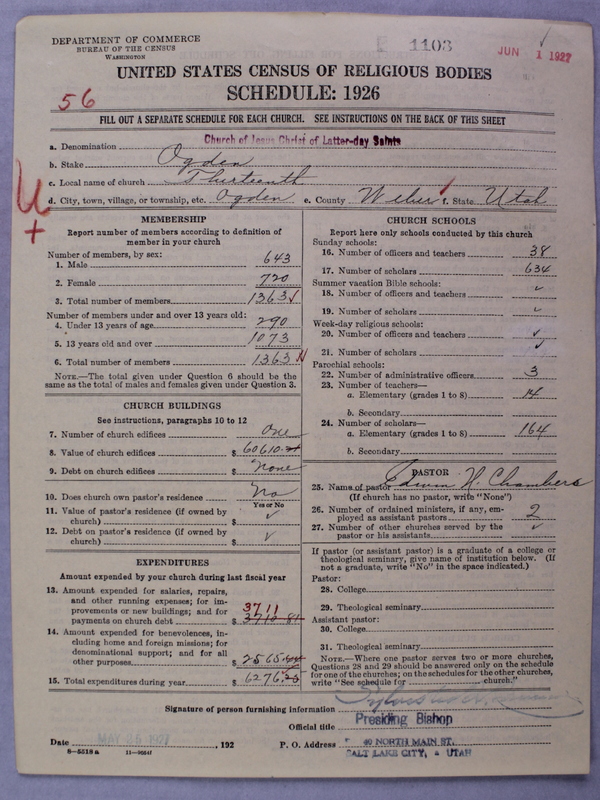 DEPARTMENT OF COMMERCE
BUREAU OF THE CENSUS
WASHINGTON
1103
JUN 1 1927
UNITED STATES CENSUS OF RELIGIOUS BODIES
SCHEDULE: 1926
56
FILL OUT A SEPARATE SCHEDULE FOR EACH CHURCH. SEE INSTRUCTIONS ON THE BACK OF THIS SHEET
a. Denomination Church of Jesus Christ of Latter-day Saints
b. Stake Ogden
c. Local name of church Thirteenth
d. City, town, village, or township, etc. Ogden e. County Weber f. State Utah
MEMBERSHIP
Report number of members according to definition of
member in your church
Number of members, by sex:
1. Male 643
2. Female 720
3. Total number of members 1363
Number of members under and over 13 years old:
4. Under 13 years of age 290
5. 13 years old and over 1073
6. Total number of members 1363
NOTE.—The total given under Question 6 should be
same as the total of males and females given under Question 3.
CHURCH BUILDINGS
See instructions, paragraphs 10 to 12
7. Number of church edifices One
8. Value of church edifices $ 60610
9. Debt on church edifices $ None
10. Does church own pastor's residence No
Yes or No
11. Value of pastor's residence (if owned by
church) $ ✓
12. Debt on pastor's residence (if owned by
church) $ ✓
EXPENDITURES
Amount expended by your church during last fiscal year
13. Amount expended for salaries, repairs,
and other running expenses; for im-
provements or new buildings; and for 3711
payments on church debt $ 3710 81
14. Amount expended for benevolences, in-
cluding home and foreign missions; for
denominational support; and for all
other purposes $ 2565
15. Total expenditures during year $ 6276
CHURCH SCHOOLS
Report here only schools conducted by this church
Sunday schools:
16. Number of officers and teachers 38
17. Number of scholars 634
Summer vacation Bible schools:
18. Number of officers and teachers ✓
19. Number of scholars ✓
Week-day religious schools:
20. Number of officers and teachers ✓
21. Number of scholars ✓
Parochial schools:
22. Number of administrative officers 3
23. Number of teachers—
a. Elementary (grades 1 to 8) 14
b. Secondary
24. Number of scholars—
a. Elementary (grades 1 to 8) 164
b. Secondary
PASTOR
25. Name of pastor Edwin H. Chambers
(If church has no pastor, write "None")
26. Number of ordained ministers, if any, em-
ployed as assistant pastors 2
27. Number of other churches served by the
pastor or his assistants ✓
If pastor (or assistant pastor) is a graduate of a college or
theological seminary, give name of institution below. (If
not a graduate, write "No" in the space indicated.)
Pastor:
28. College
29. Theological seminary
Assistant pastor:
30. College
31. Theological seminary
NOTE.—Where one pastor serves two or more churches,
Questions 28 and 29 should be answered only on the schedule
for one of the churches; on the schedules for the other churches,
write "See schedule for church."
Signature of person furnishing information
Official title Presiding Bishop
Date MAY 25 1927, 192 P. O. Address 40 NORTH MAIN ST.
SALT LAKE CITY, UTAH
8-5518a